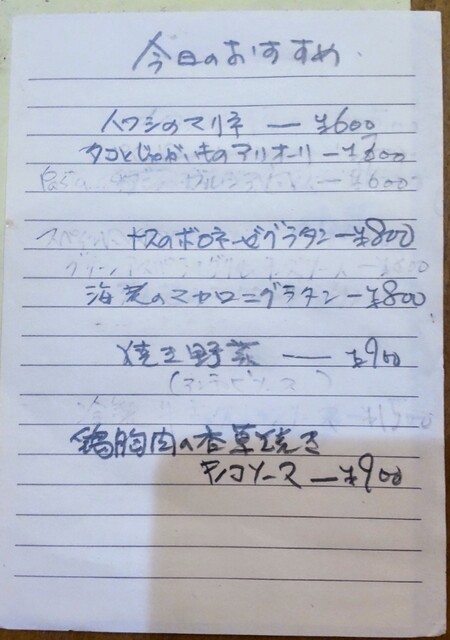 今日のおすすめ
イワシのマリネ — ¥600
タコとじゃがいものアリオーリ — ¥600
¥600
ナスのボロネーゼグラタン — ¥800
海老のマカロニグラタン — ¥800
焼き野菜 — ¥900
鶏胸肉の香草焼き
キノコソース — ¥900